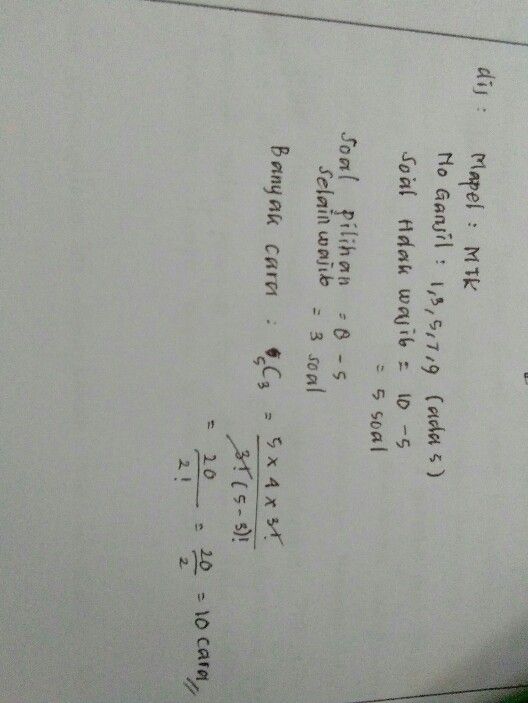 dij :
Mapel : MTK
No Ganjil : 1,3,5,7,9 (ada 5)
Soal tidak wajib = 10 - 5
= 5 soal
Soal pilihan = 8 - 5
selain wajib = 3 soal
Banyak cara : 5C3 = 5 x 4 x 3! / 3! (5-3)!
= 20 / 2! = 20 / 2 = 10 cara //